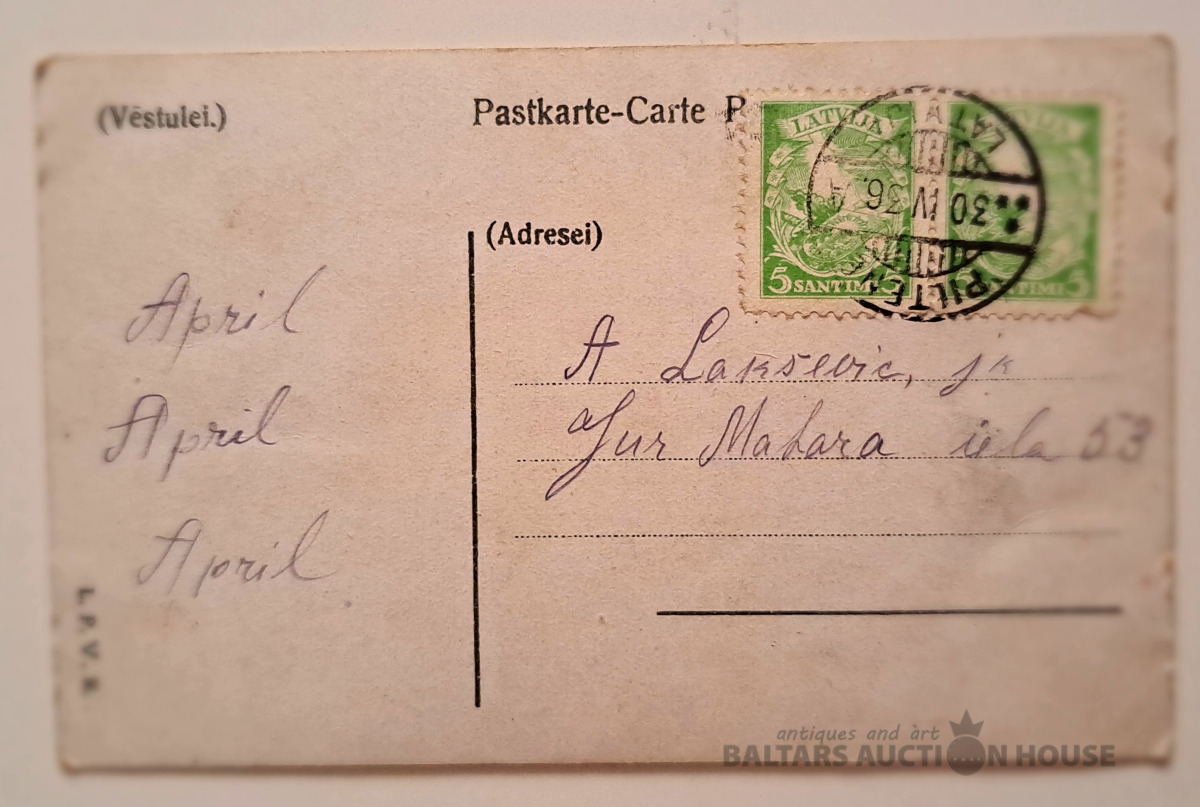 (Vēstulei.)
Pastkarte-Carte P
LATVIJA
5 SANTIMI 5
SANTIMI 5
LATV
30 IV 36
PILTEN
(Adresei)
April
April
April
A Laksevic, jk
Jur Matara iela 53
L. P. V. R.
antiques and àrt
BALTARS AUCTION HOUSE